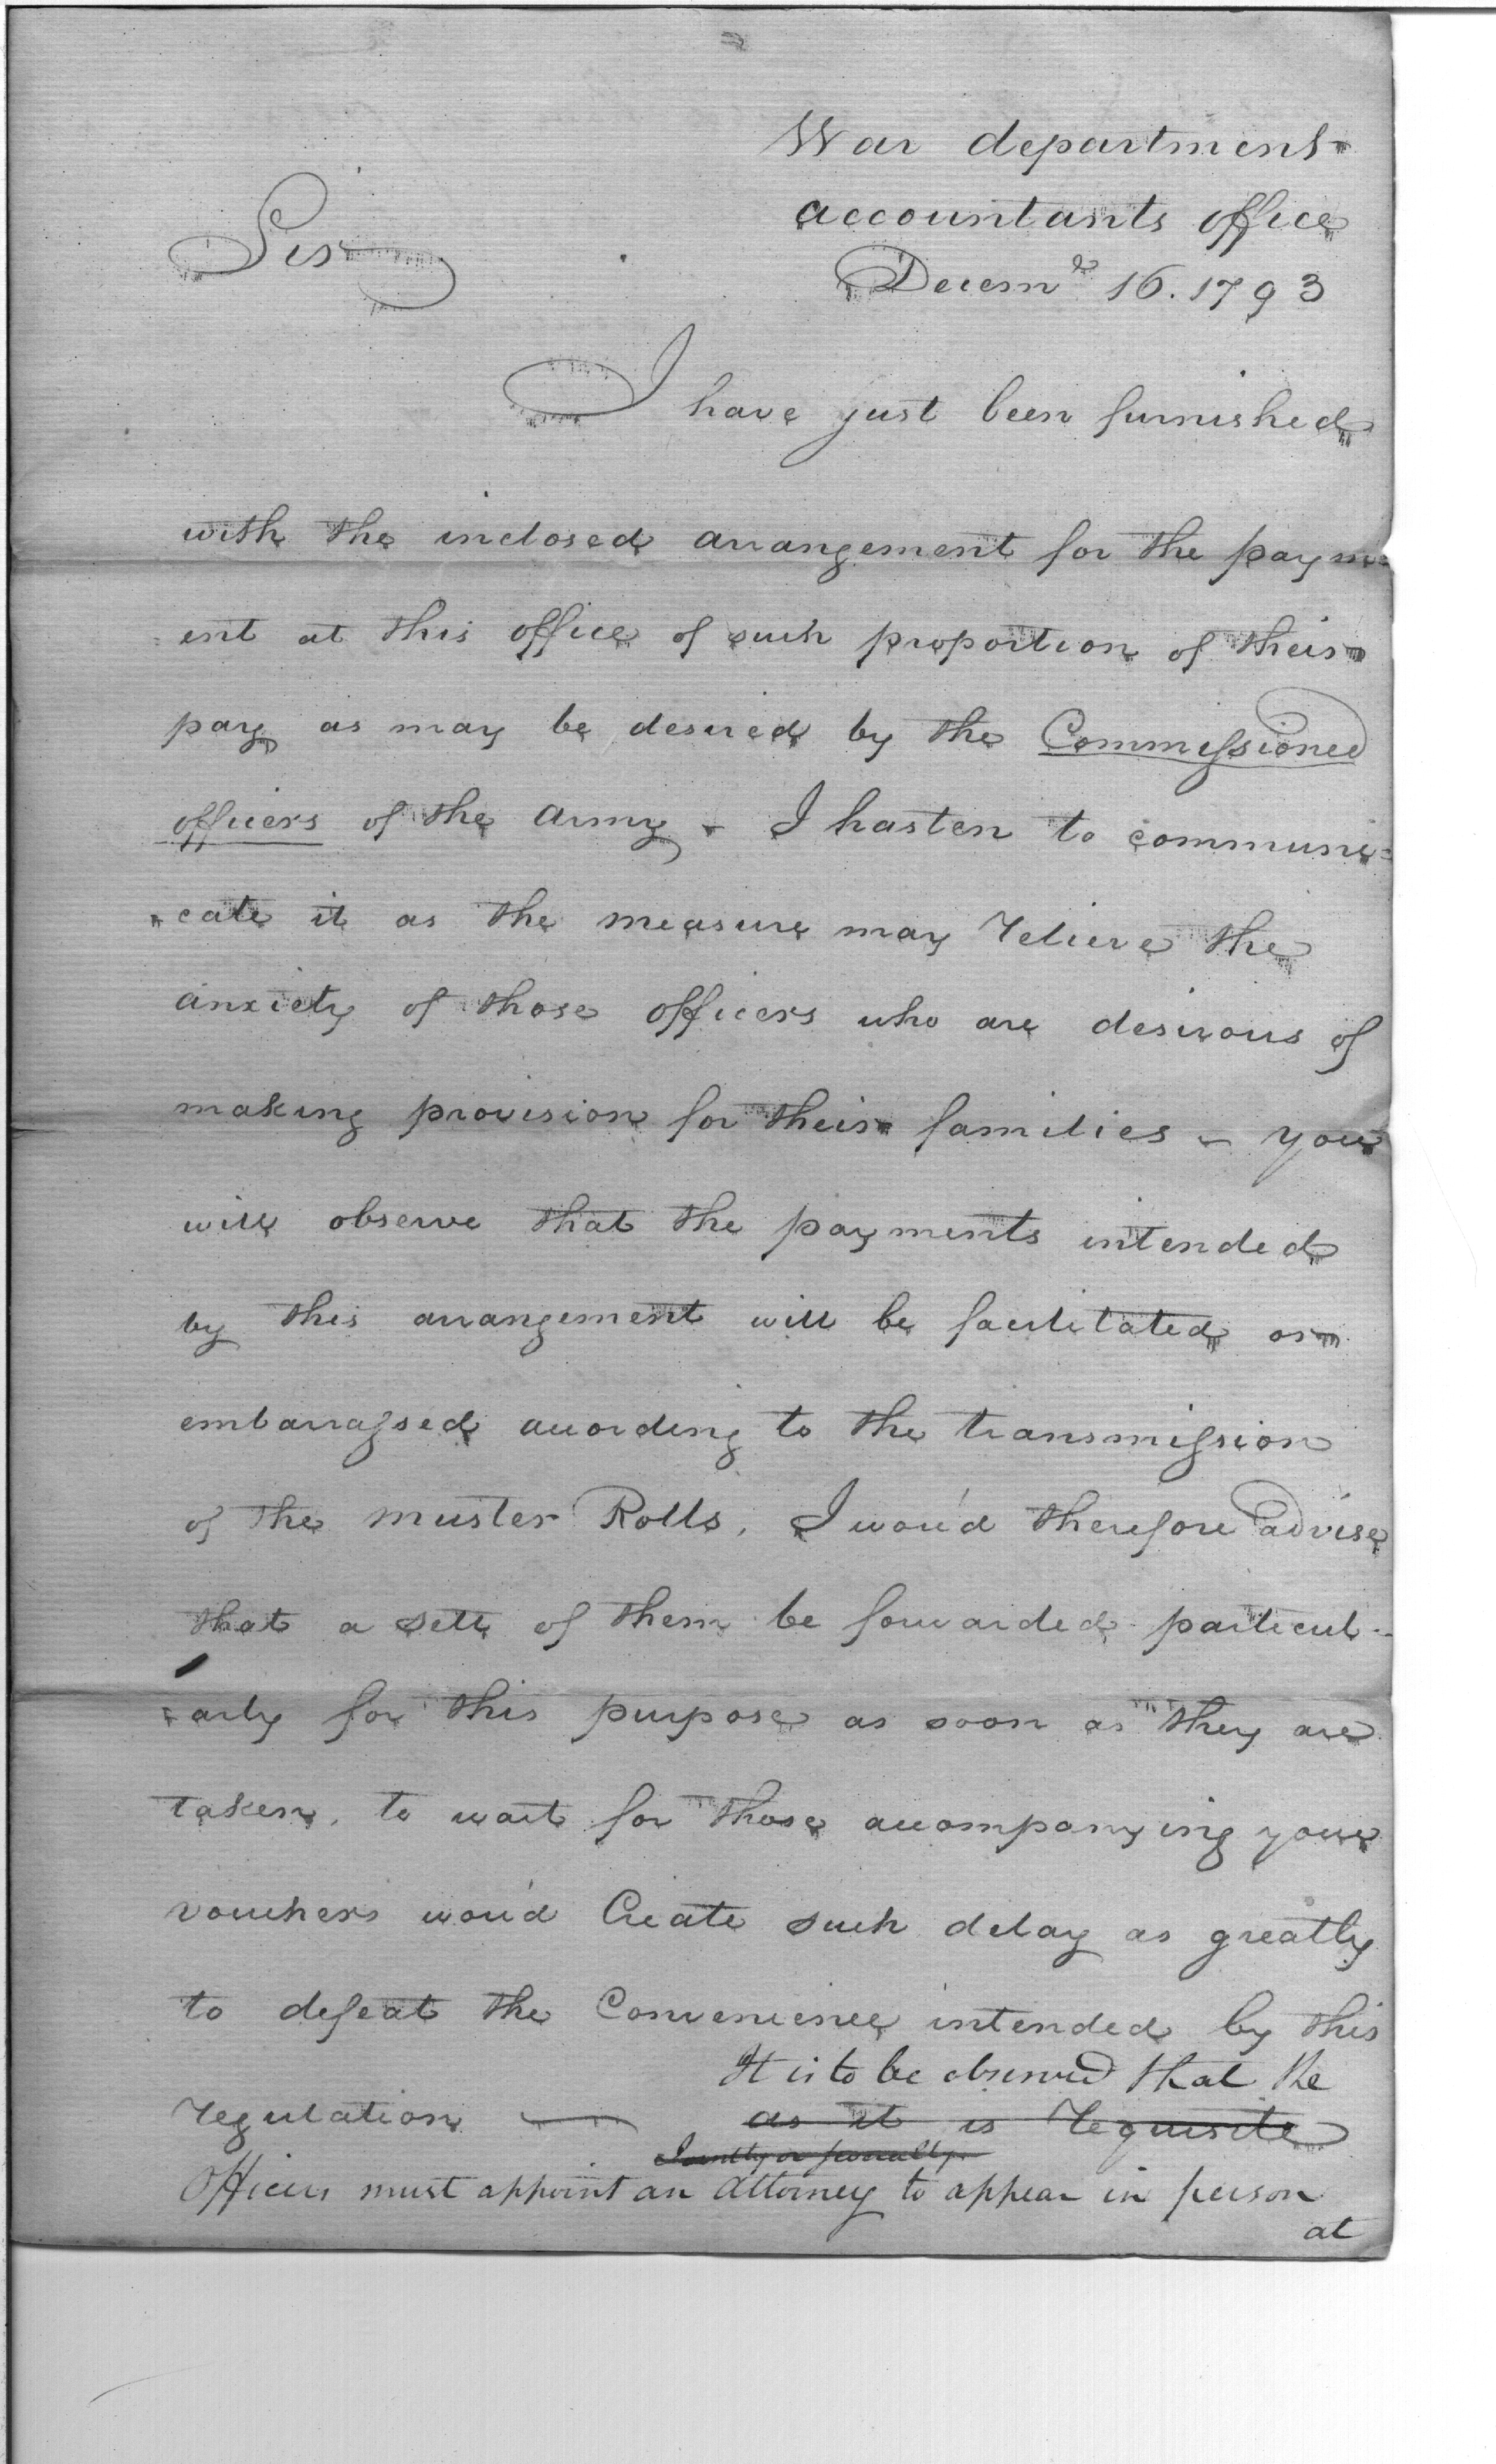 War department
accountants office
Sir
Decemr 16. 1793
I have just been furnished
with the inclosed arrangement for the paym=
=ent at this office of such proportion of their
pay as may be desired by the Commissioned
officers of the Army - I hasten to communi=
=cate it as the measure may relieve the
anxiety of those officers who are desirous of
making provision for their families - you
will observe that the payments intended
by this arrangement will be facilitated or
embarrassed according to the transmission
of the muster Rolls, I wou'd therefore advise
that a sett of them be forwarded particul=
=arly for this purpose as soon as they are
taken, to wait for those accompanying your
vouchers wou'd Create such delay as greatly
to defeat the Convenience intended by this
It is to be observed that the
regulation — as it is requisite
Jointly or severally
Officers must appoint an Attorney to appear in person
at